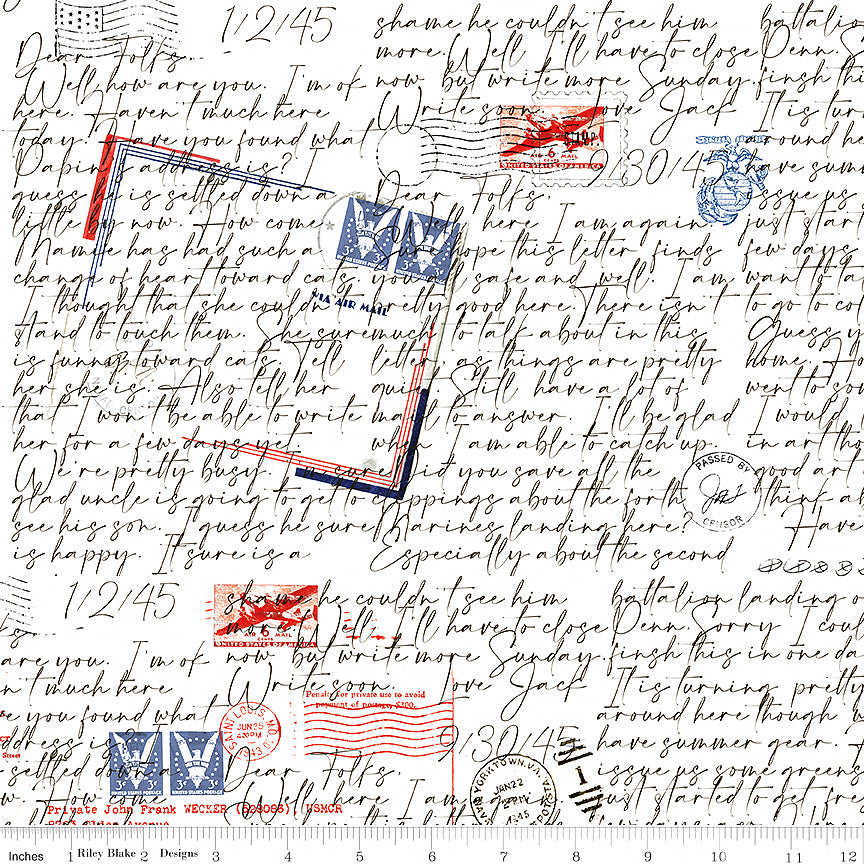 1/2/45
Dear Folks.
Well, how are you. I'm ok
here. Haven't much here
today. Have you found what
Dapin's address is? I
guess he is settled down a
little by now. How come
Mamie has had such a
change of heart toward cats.
I thought that she couldn't
stand to touch them. She sure
is funny toward cats. Tell
her she is. Also tell her
that I won't be able to write
her for a few days yet.
We're pretty busy. I'm sure
glad uncle is going to get to
see his son. I guess he sure
is happy. It sure is a
shame he couldn't see him
more. Well I'll have to close
now but write more Sunday.
Write soon. Love Jack
9/30/45
Dear Folks.
Sure hope this letter finds
you all safe and well. I am
pretty good here. There isn't
much to talk about in this
letter as things are pretty
quiet. Still have a lot of
mail to answer. I'll be glad
when I am able to catch up.
Did you save all the
clippings about the forth
Marines landing here?
Especially about the second
battalion
Denn.
finsh thi
It is turn
around he
have sum
issue us
just star
few days.
want to ta
to go to co
Guess y
home. Ho
went to so
I would
in art th
good art
think a
Have
AIR 6 MAIL
CENTS
UNITED STATES OF AMERICA
VIA AIR MAIL
PASSED BY
CENSOR
1/2/45
shame he couldn't see him
more. Well I'll have to close
now but write more Sunday.
Write soon. Love Jack
battalion landing o
Denn. Sorry I coul
finsh this in one da
It is turning pretty
around here though
have summer gear.
issue us some greens
just started to get fre
are you. I'm ok
n't much here
e you found what
address is? I
settled down a
w. How come
AIR 6 MAIL
CENTS
UNITED STATES OF AMERICA
Penalty for private use to avoid
payment of postage, $300.
SAINT LOUIS, MO.
JUN 25
4 30 PM
1943
9/30/45
Dear Folks.
here I am again
3¢ 3¢
UNITED STATES POSTAGE
3¢ 3¢
UNITED STATES POSTAGE
YORKTOWN, VA.
JAN 22
1945
Private John Frank WECKER (525086), USMCR
Inches 1 Riley Blake 2 Designs 3 4 5 6 7 8 9 10 11 12